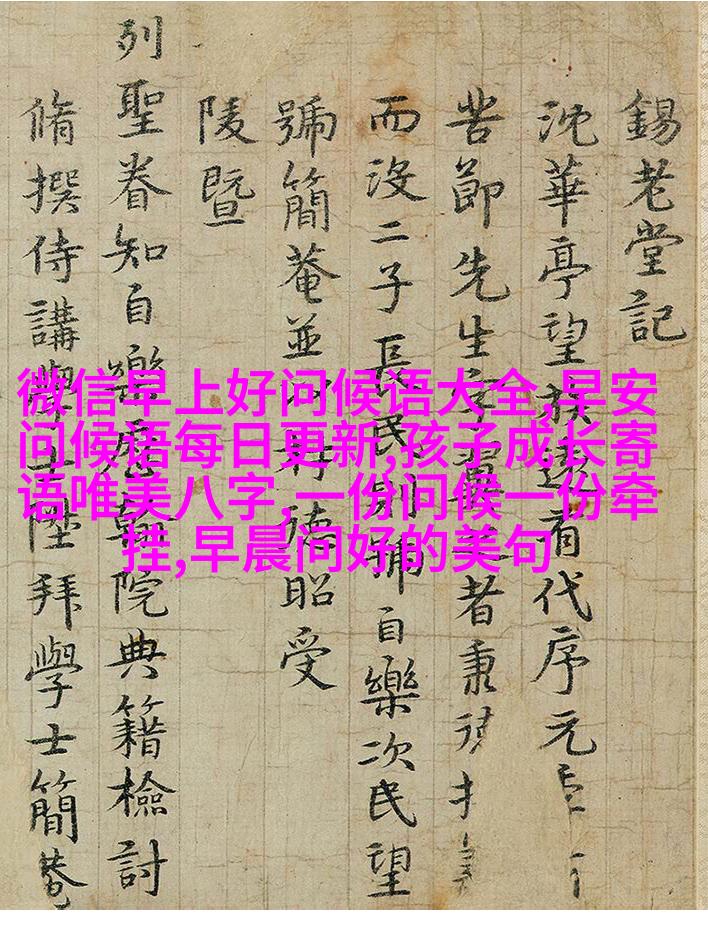 錫老堂記
沈華亭望族遠有代序元
苦節先生者秉
而沒二子長民別號自樂次民望
號簡菴並德昭受
陵暨
列聖眷知自樂翰院典籍檢討
脩撰侍講學士陞拜學士簡菴
微信早上好问候语大全,早安
问候语每日更新,孩子成长寄
语唯美八字,一份问候一份牵
挂,早晨问好的美句